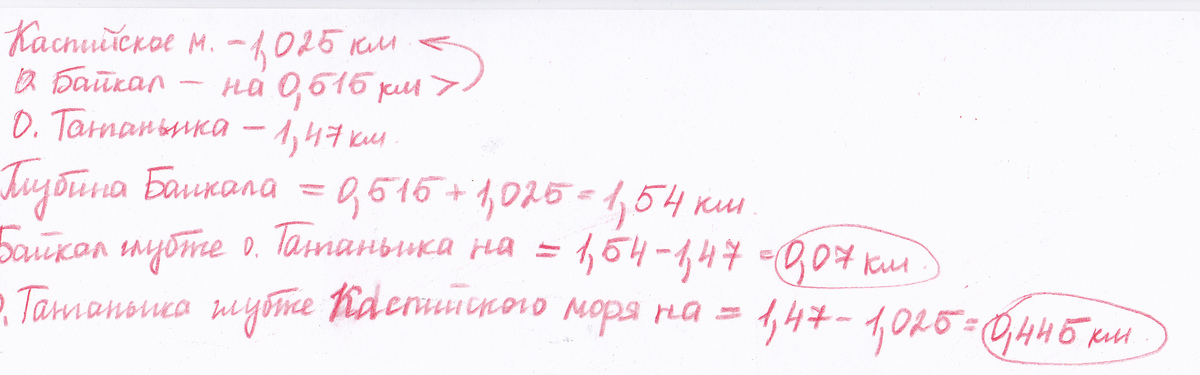 Каспийское м. – 1,025 км
О. Байкал – на 0,515 км >
О. Танганьика – 1,47 км
Глубина Байкала = 0,515 + 1,025 = 1,54 км
Байкал глубже о. Танганьика на = 1,54 – 1,47 = 0,07 км.
О. Танганьика глубже Каспийского моря на = 1,47 – 1,025 = 0,445 км